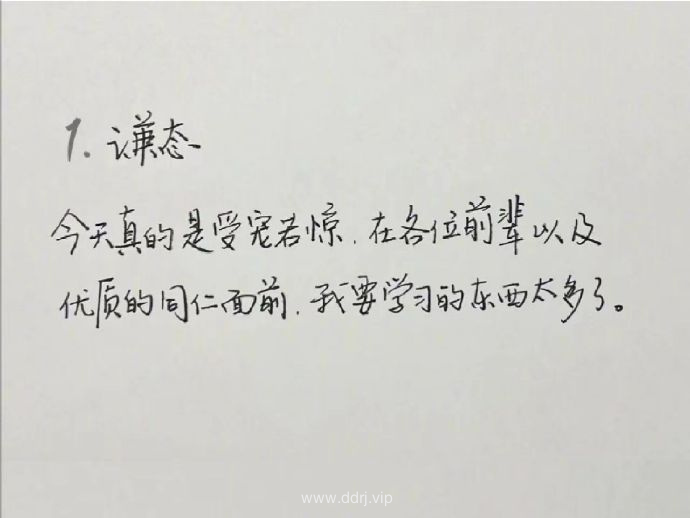 1. 谦态
今天真的是受宠若惊，在各位前辈以及
优质的同仁面前，我要学习的东西太多了。
www.ddrj.vip